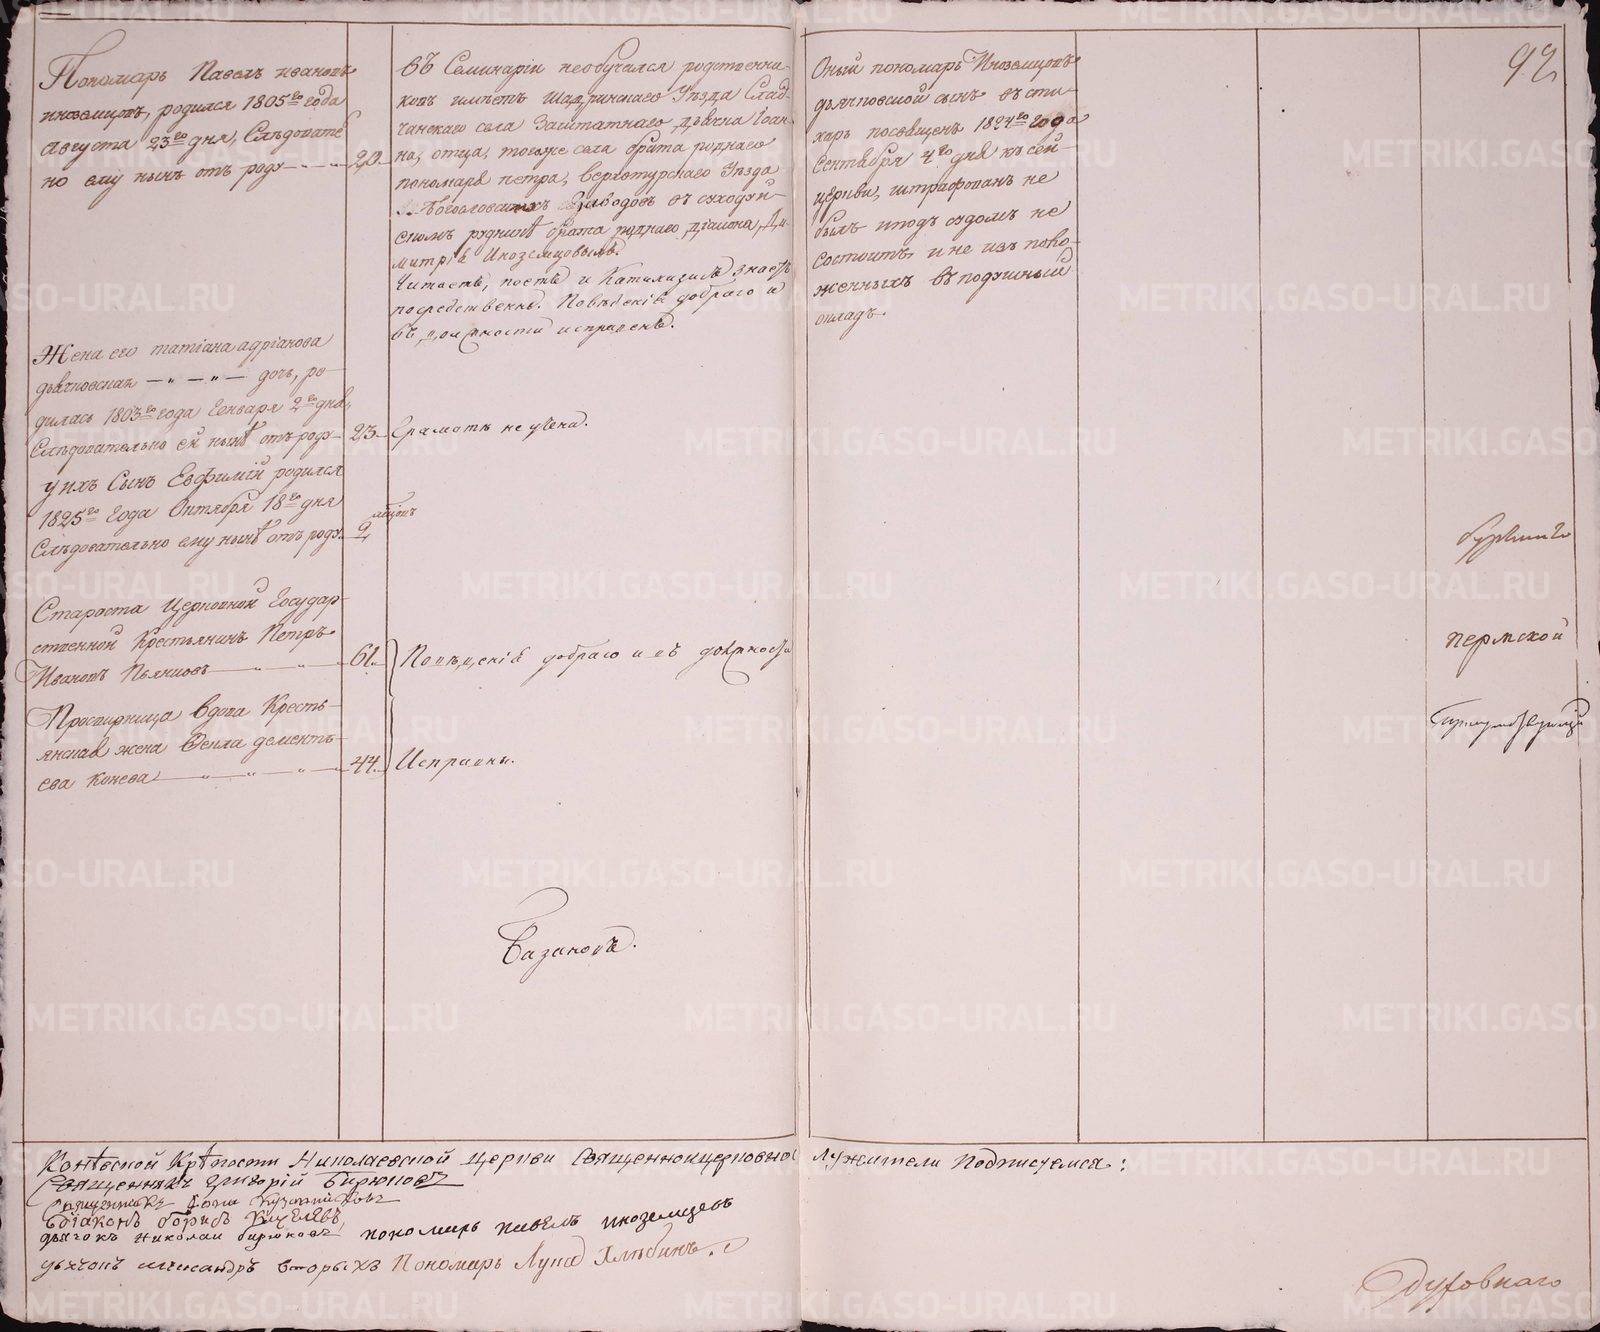 92
Пономарь Павелъ Ивановъ
Иноземцовъ, родился 1805го года
Августа 23го дня, Слѣдовател
но ему нынѣ отъ роду 20.
Въ Семинаріи необучался родственни-
ковъ имѣетъ Шадринскаго Уѣзда
села Заштатнаго Дьячка Іоан-
на, отца, тогоже села брата роднаго
пономаря Петра, Верхотурскаго Уѣзда
Богословскихъ Заводовъ въ
рудникѣ брата роднаго діакона, Ди-
митрія Иноземцовыхъ.
Читаетъ, поетъ и Катихизисъ знаетъ
посредственно. Поведенія добраго и
въ должности исправенъ.
Оный пономарь Иноземцовъ
дьячковской сынъ въ сти-
харь посвященъ 1824го года
Сентября 4го дня къ сей
церкви, штрафованъ не
былъ и подъ судомъ не
состоитъ и не изъ поло-
женныхъ въ подушный
окладъ.
Жена его Татіана Адріанова
дьячковская дочь, ро-
дилась 1803го года Генваря 2го дня,
Слѣдовательно ей нынѣ отъ роду 23
Грамотѣ не учена.
У ихъ Сынъ Евфимій родился
1825го года Октября 18го дня
Слѣдовательно ему нынѣ отъ роду 2 мѣсяцъ
Староста Церковной Государ-
ственной Крестьянинъ Петръ
Ивановъ Пьянковъ 61.
Поведенія добраго и въ должности
Просвирница вдова Кресть-
янская жена Фекла Дементь-
ева Конева 44.
Исправны.
Пермской
Базановъ.
Крѣпости Николаевской Церкви Священноицерковнослужители Подписуемся:
Священникъ Григорій Бирюковъ
Священникъ
Діаконъ Борисъ
дьячокъ Николай Бирюковъ пономарь Павелъ Иноземцовъ
дьячокъ Александръ Вторыхъ Пономарь Лука
Духовнаго
METRIKI.GASO-URAL.RU